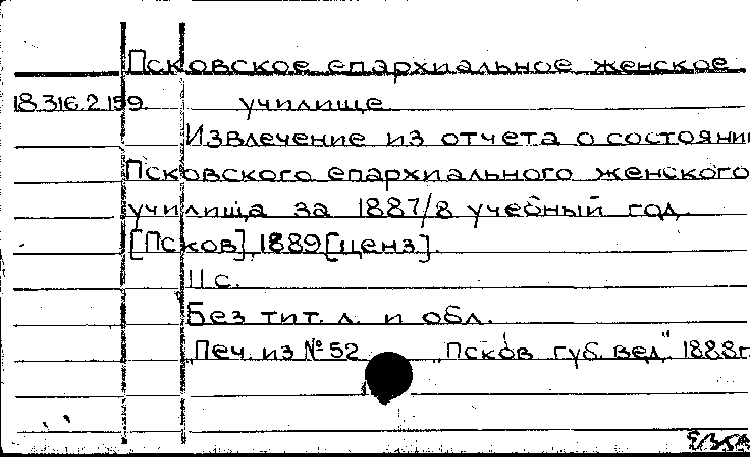 Псковское епархиальное женское
18.316.2.159. училище
Извлечение из отчета о состоянии
Псковского епархиального женского
училища за 1887/8 учебный год.
[Псков], 1889 [ценз].
11 с.
Без тит. л. и обл.
„Печ. из № 52 „Псков губ. вед." 1888г.